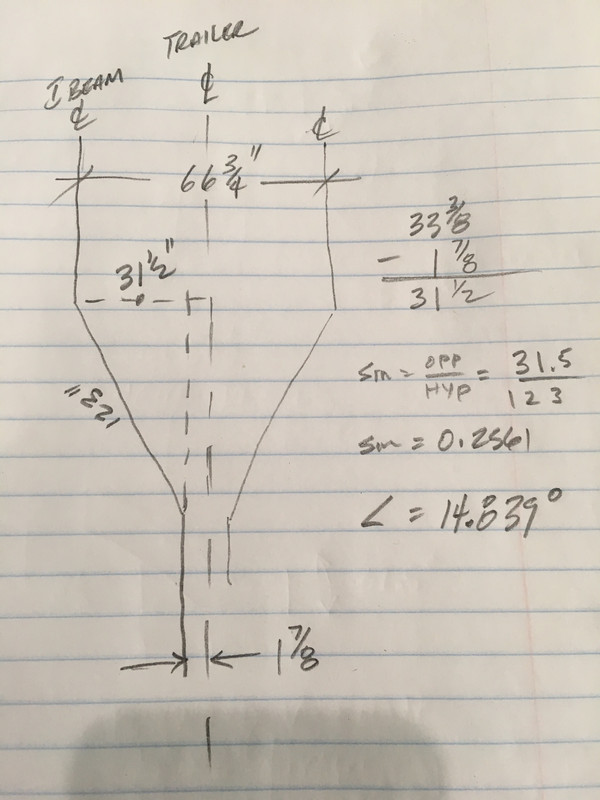 TRAILER
℄
I BEAM
℄
℄
66 3/4"
31 1/2"
123"
1 7/8
33 3/8
- 1 7/8
31 1/2
sin = OPP/HYP = 31.5/123
sin = 0.2561
∠ = 14.839°